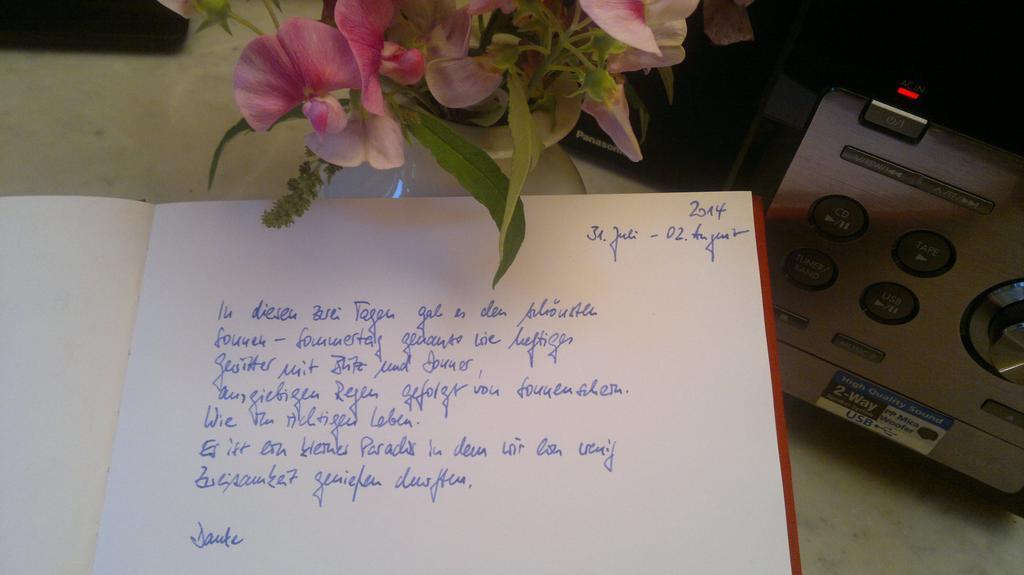 2014
31. Juli - 02. August
In diesen zwei Tagen gab es den schönsten
Sonnen - Sommertag genauso wie heftiges
Gewitter mit Blitz und Donner,
ausgiebigen Regen gefolgt von Sonnenschein.
Wie im richtigen Leben.
Es ist ein kleines Paradies in dem wir ein wenig
Zweisamkeit genießen durften.
Danke
Panasonic
AC IN
CD
TAPE
TUNER/
BAND
USB
High Quality Sound
2-Way
PP Mica
Woofer
USB